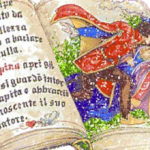 po da
llezza
a baciare
ulla.
pina aprì gli
si guardò intor
apito e abbracciò
noscente il suo
atore.